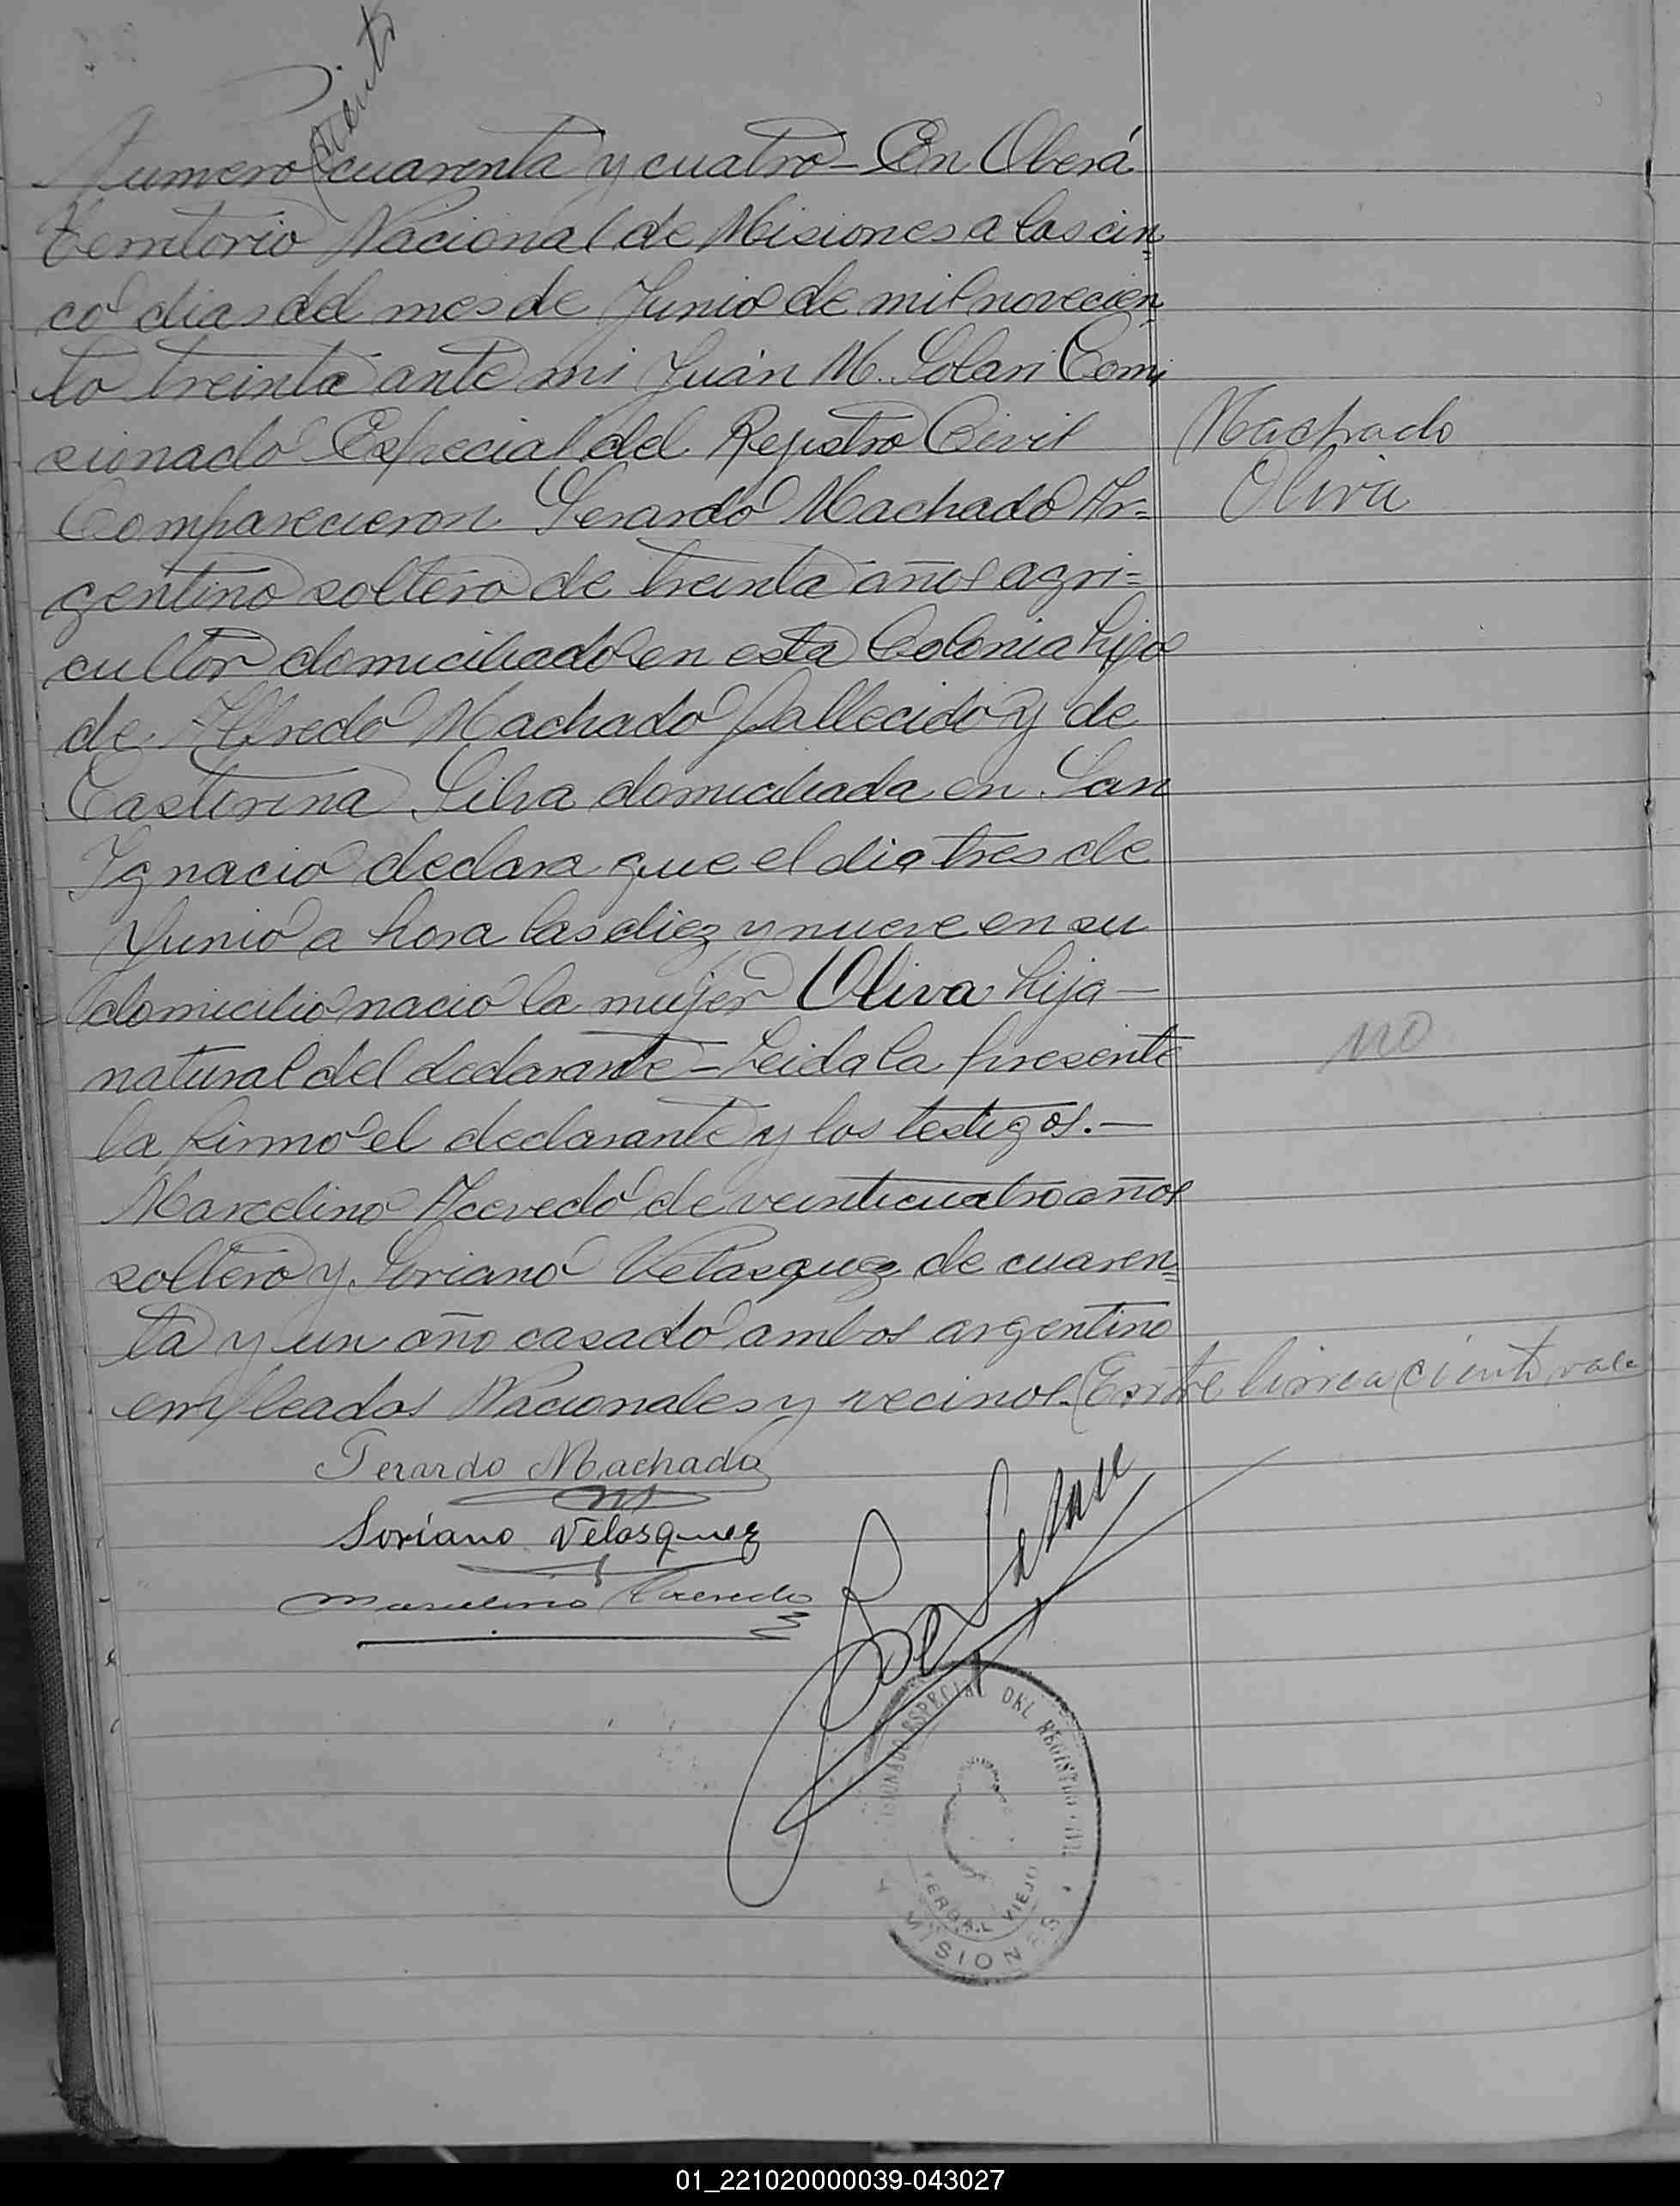 ciento
Numero cuarenta y cuatro - En Oberá
territorio Nacional de Misiones a los cin=
co dias del mes de Junio de mil novecien=
to treinta ante mi Juán M. Solari Comi
sionado Especial del Rejistro Civil
Machado
Oliva
Comparecieron Gerardo Machado Ar=
gentino soltero de treinta años agri=
cultor domiciliado en esta Colonia hijo
de Alfredo Machado fallecido y de
Castorina Silva domiciliada en San
Ignacio declara que el dia tres de
Junio a hora las diez y nueve en su
domicilio nacio la mujer Oliva hija -
natural del declarante - Leida la presente
no
la firmo el declarante y los testigos. -
Marcelino Acevedo de veinticuatro años
soltero y Soriano Velasquez de cuaren=
ta y un año casado ambos argentino
empleados Nacionales y vecinos. (Entre linea (ciento vale
Gerardo Machado
Soriano Velásquez
Marcelino Acevedo
ESPECIAL DEL REGISTRO CIVIL
YERBAL VIEJO
MISIONES
01_221020000039-043027